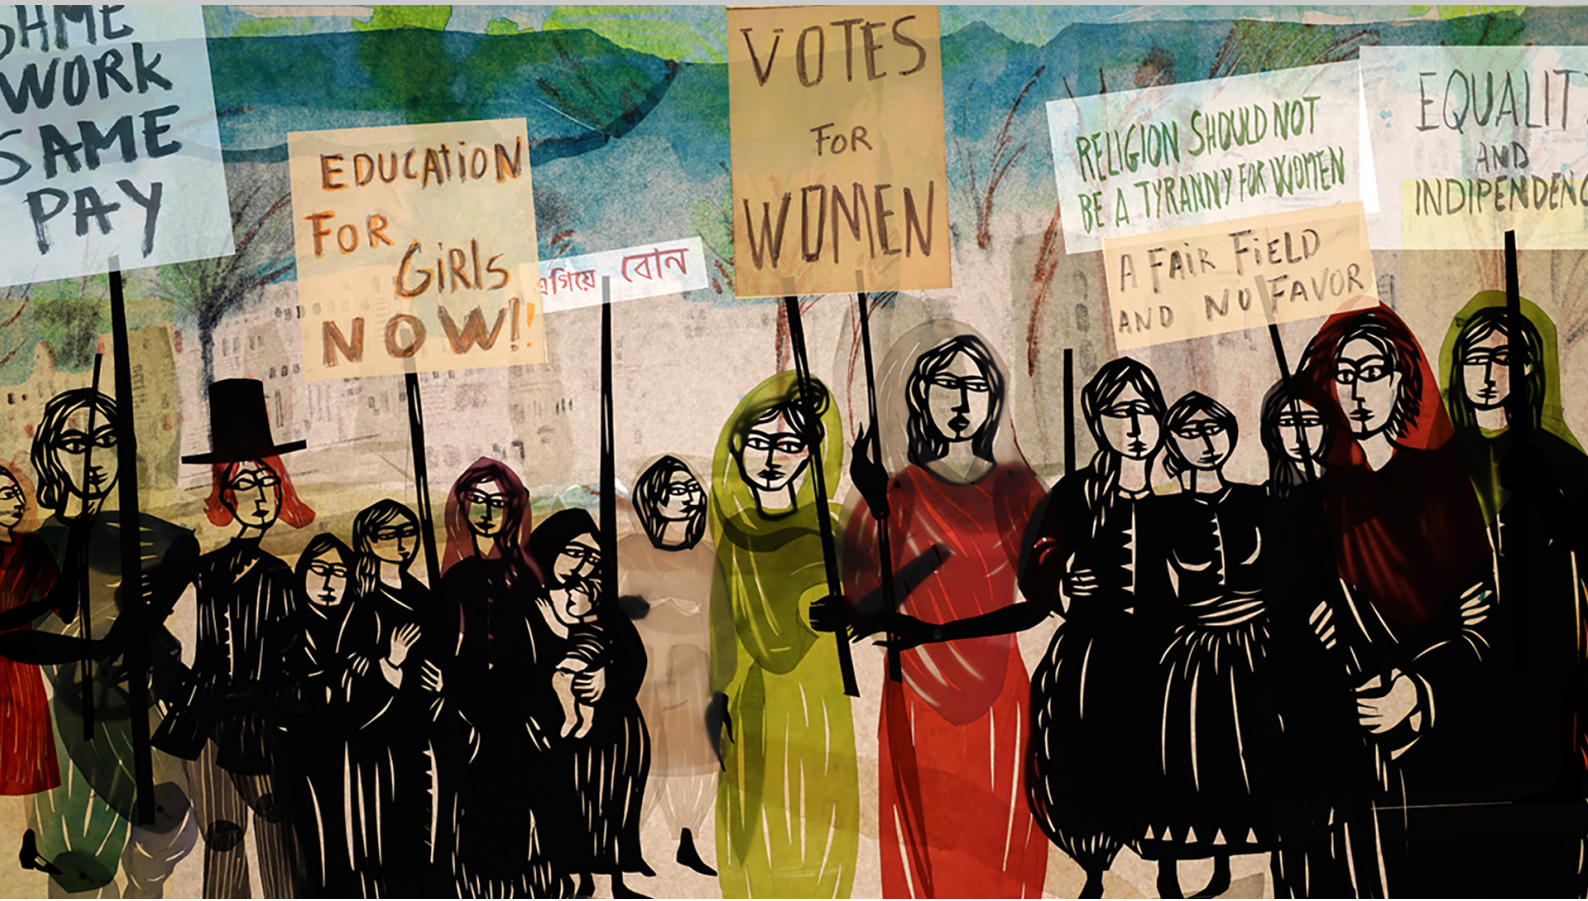 SAME
WORK
SAME
PAY
EDUCATION
FOR
GIRLS
NOW!!
এগিয়ে বোন
VOTES
FOR
WOMEN
RELIGION SHOULD NOT
BE A TYRANNY FOR WOMEN
A FAIR FIELD
AND NO FAVOR
EQUALITY
AND
INDIPENDENC